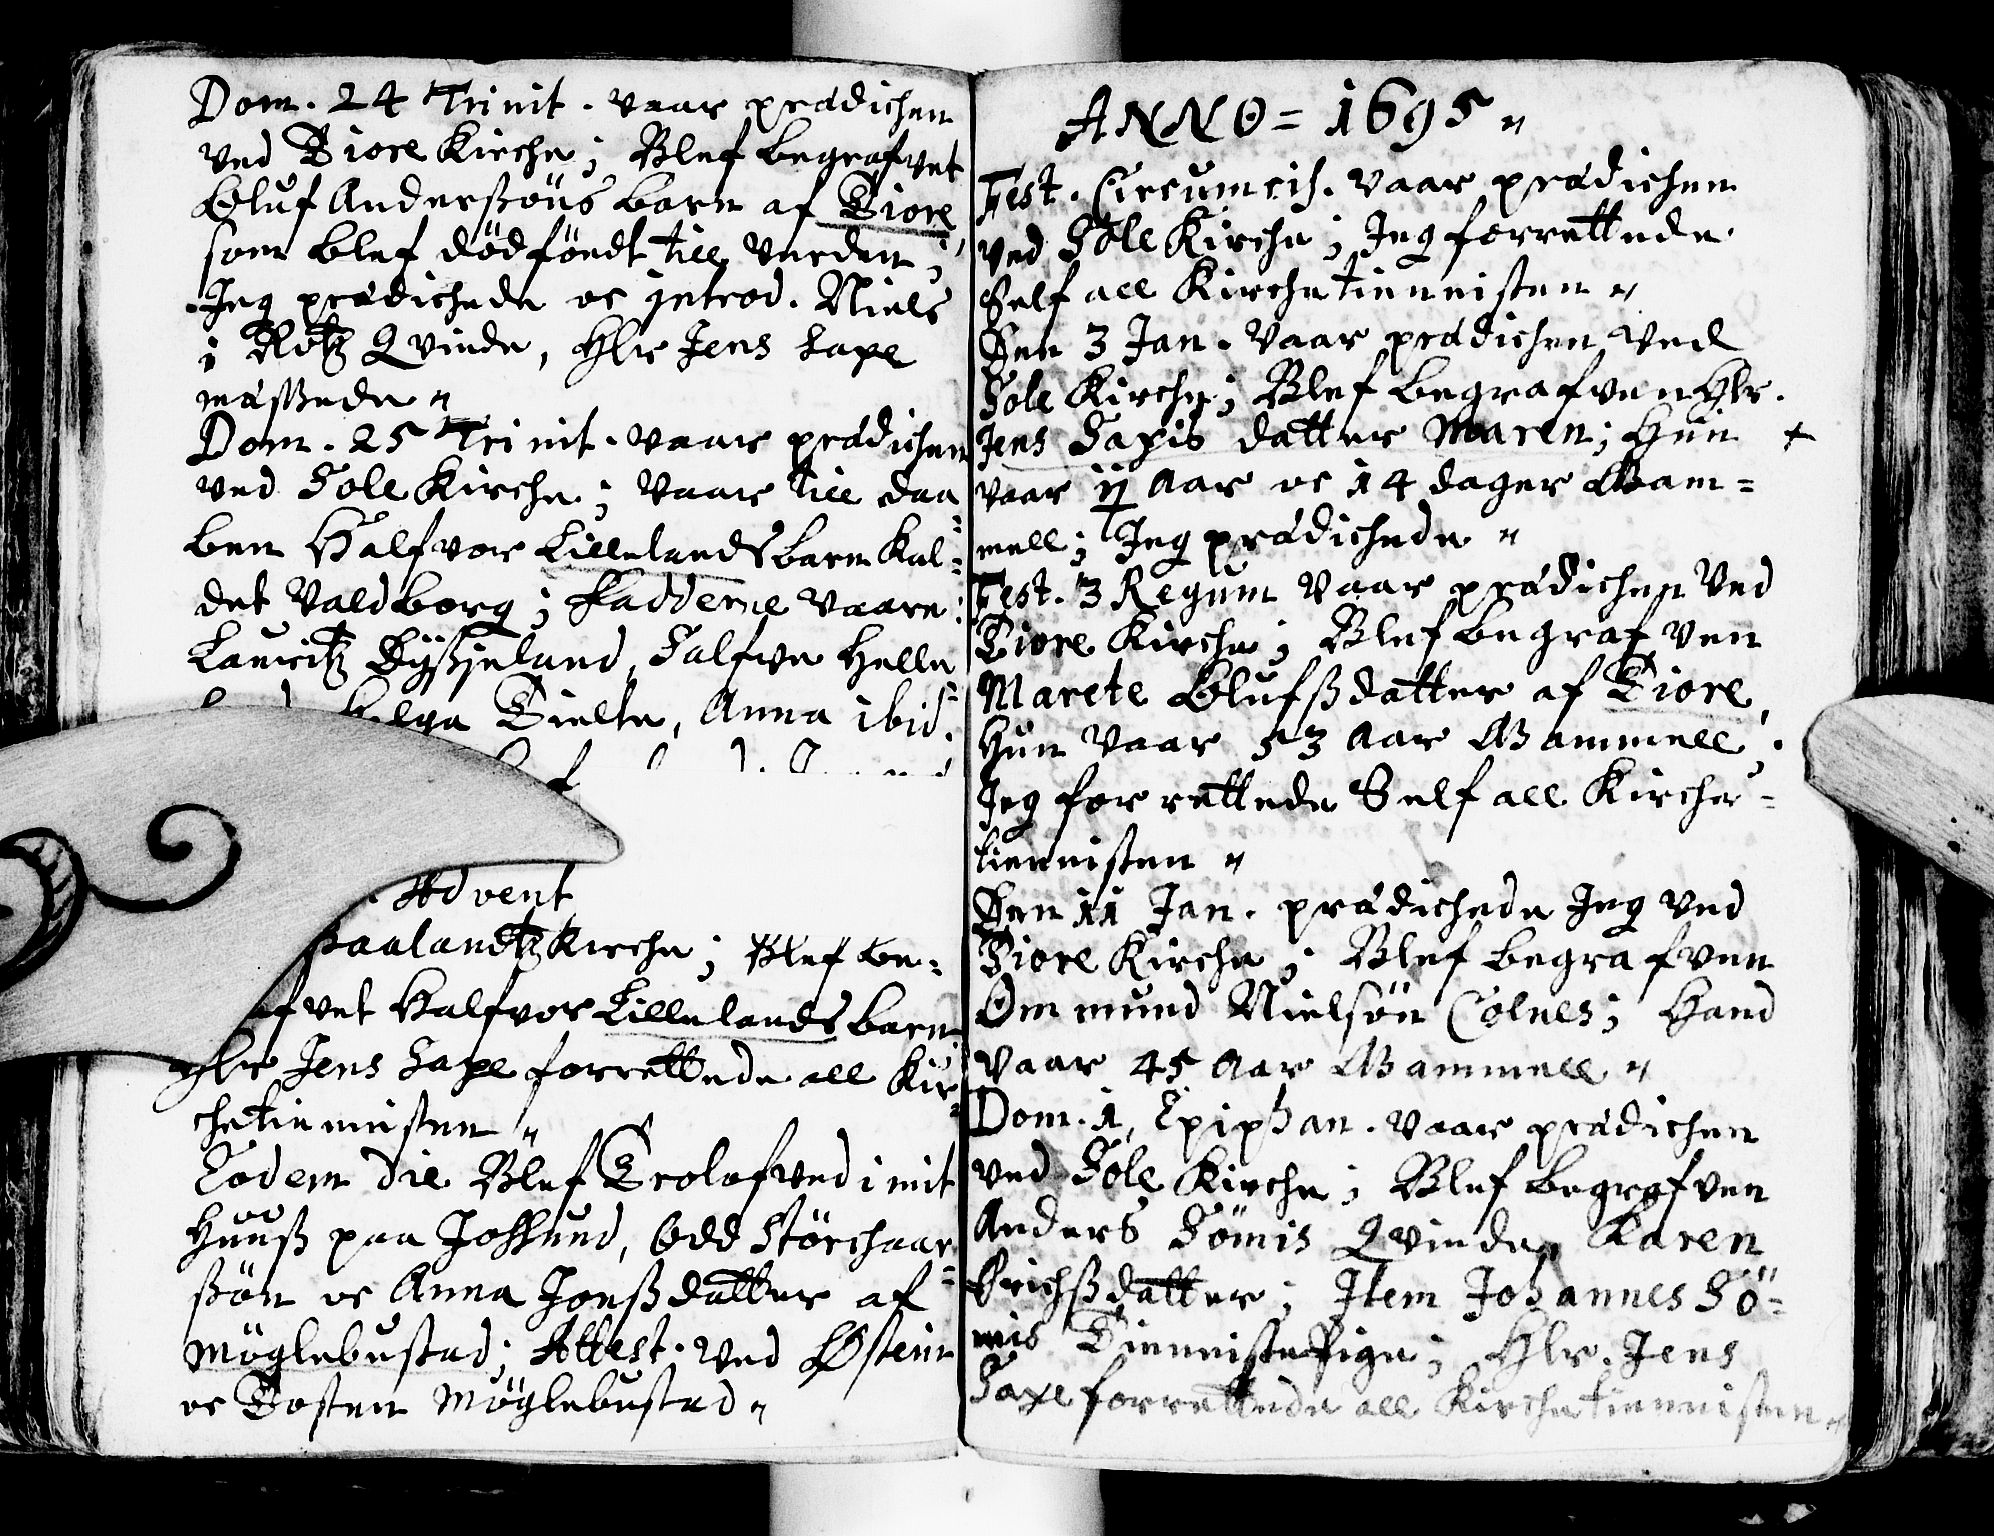 Dom. 24 Trinit. vaar prædichen
ved Tiore Kirche; Blef begrafvet
Oluf Anderssöns barn af Tiore,
som blef dödföndt till verden;
Jeg prædichede oc introd. Niels
i Rötz Qvinde, Hlr Jens Saxe
mæssede "
Dom. 25 Trinit. vaar prædichen
ved Sole Kirche; vaar till daa=
ben Halfvor Lillelands barn kal=
det Valdborg; Fadderne vaare:
Lauritz Byssjeland, Salfve Helle=
Helga Tielte, Anna ibid.
Advent
Haalandtz Kirche; Blef be=
afvet Halfvor Lillelands barn
Hlr Jens Saxe forrettede all Kir=
chetiennisten "
Eodem die Blef Trolofved i mit
Huuss paa Johsund, Odd Störchaar=
sön oc Anna Jonssdatter af
Möglebustad; Attest. ved Østein
oc Tosten Möglebustad "
ANNO = 1695 "
Fest. Circumcis. vaar prædichen
ved Sole Kirche; Jeg forrettede
Self all Kirchetiennisten "
Den 3 Jan. vaar prædichen ved
Sole Kirche; Blef begrafven Hlr.
Jens Saxis datter Maren; Hun +
vaar 11 Aar oc 14 dager Gam=
mell; Jeg prædichede "
Fest. 3 Regum vaar prædichen ved
Tiore Kirche; Blef begrafven
Marete Olufssdatter af Tiore,
Hun vaar 53 Aar Gammell;
Jeg forrettede Self all Kirche=
tiennisten "
Den 11 Jan. prædichede Jeg ved
Tiore Kirche; Blef begrafven
Ommund Nielsön Colnes; Hand
vaar 45 Aar Gammell "
Dom. 1. Epiphan. vaar prædichen
ved Sole Kirche; Blef begrafven
Anders Sömis Qvinde, Karen
Erichssdatter; Item Johannes Sö=
mis Tienniste Pige; Hlr. Jens
Saxe forrettede all Kirchetiennisten "